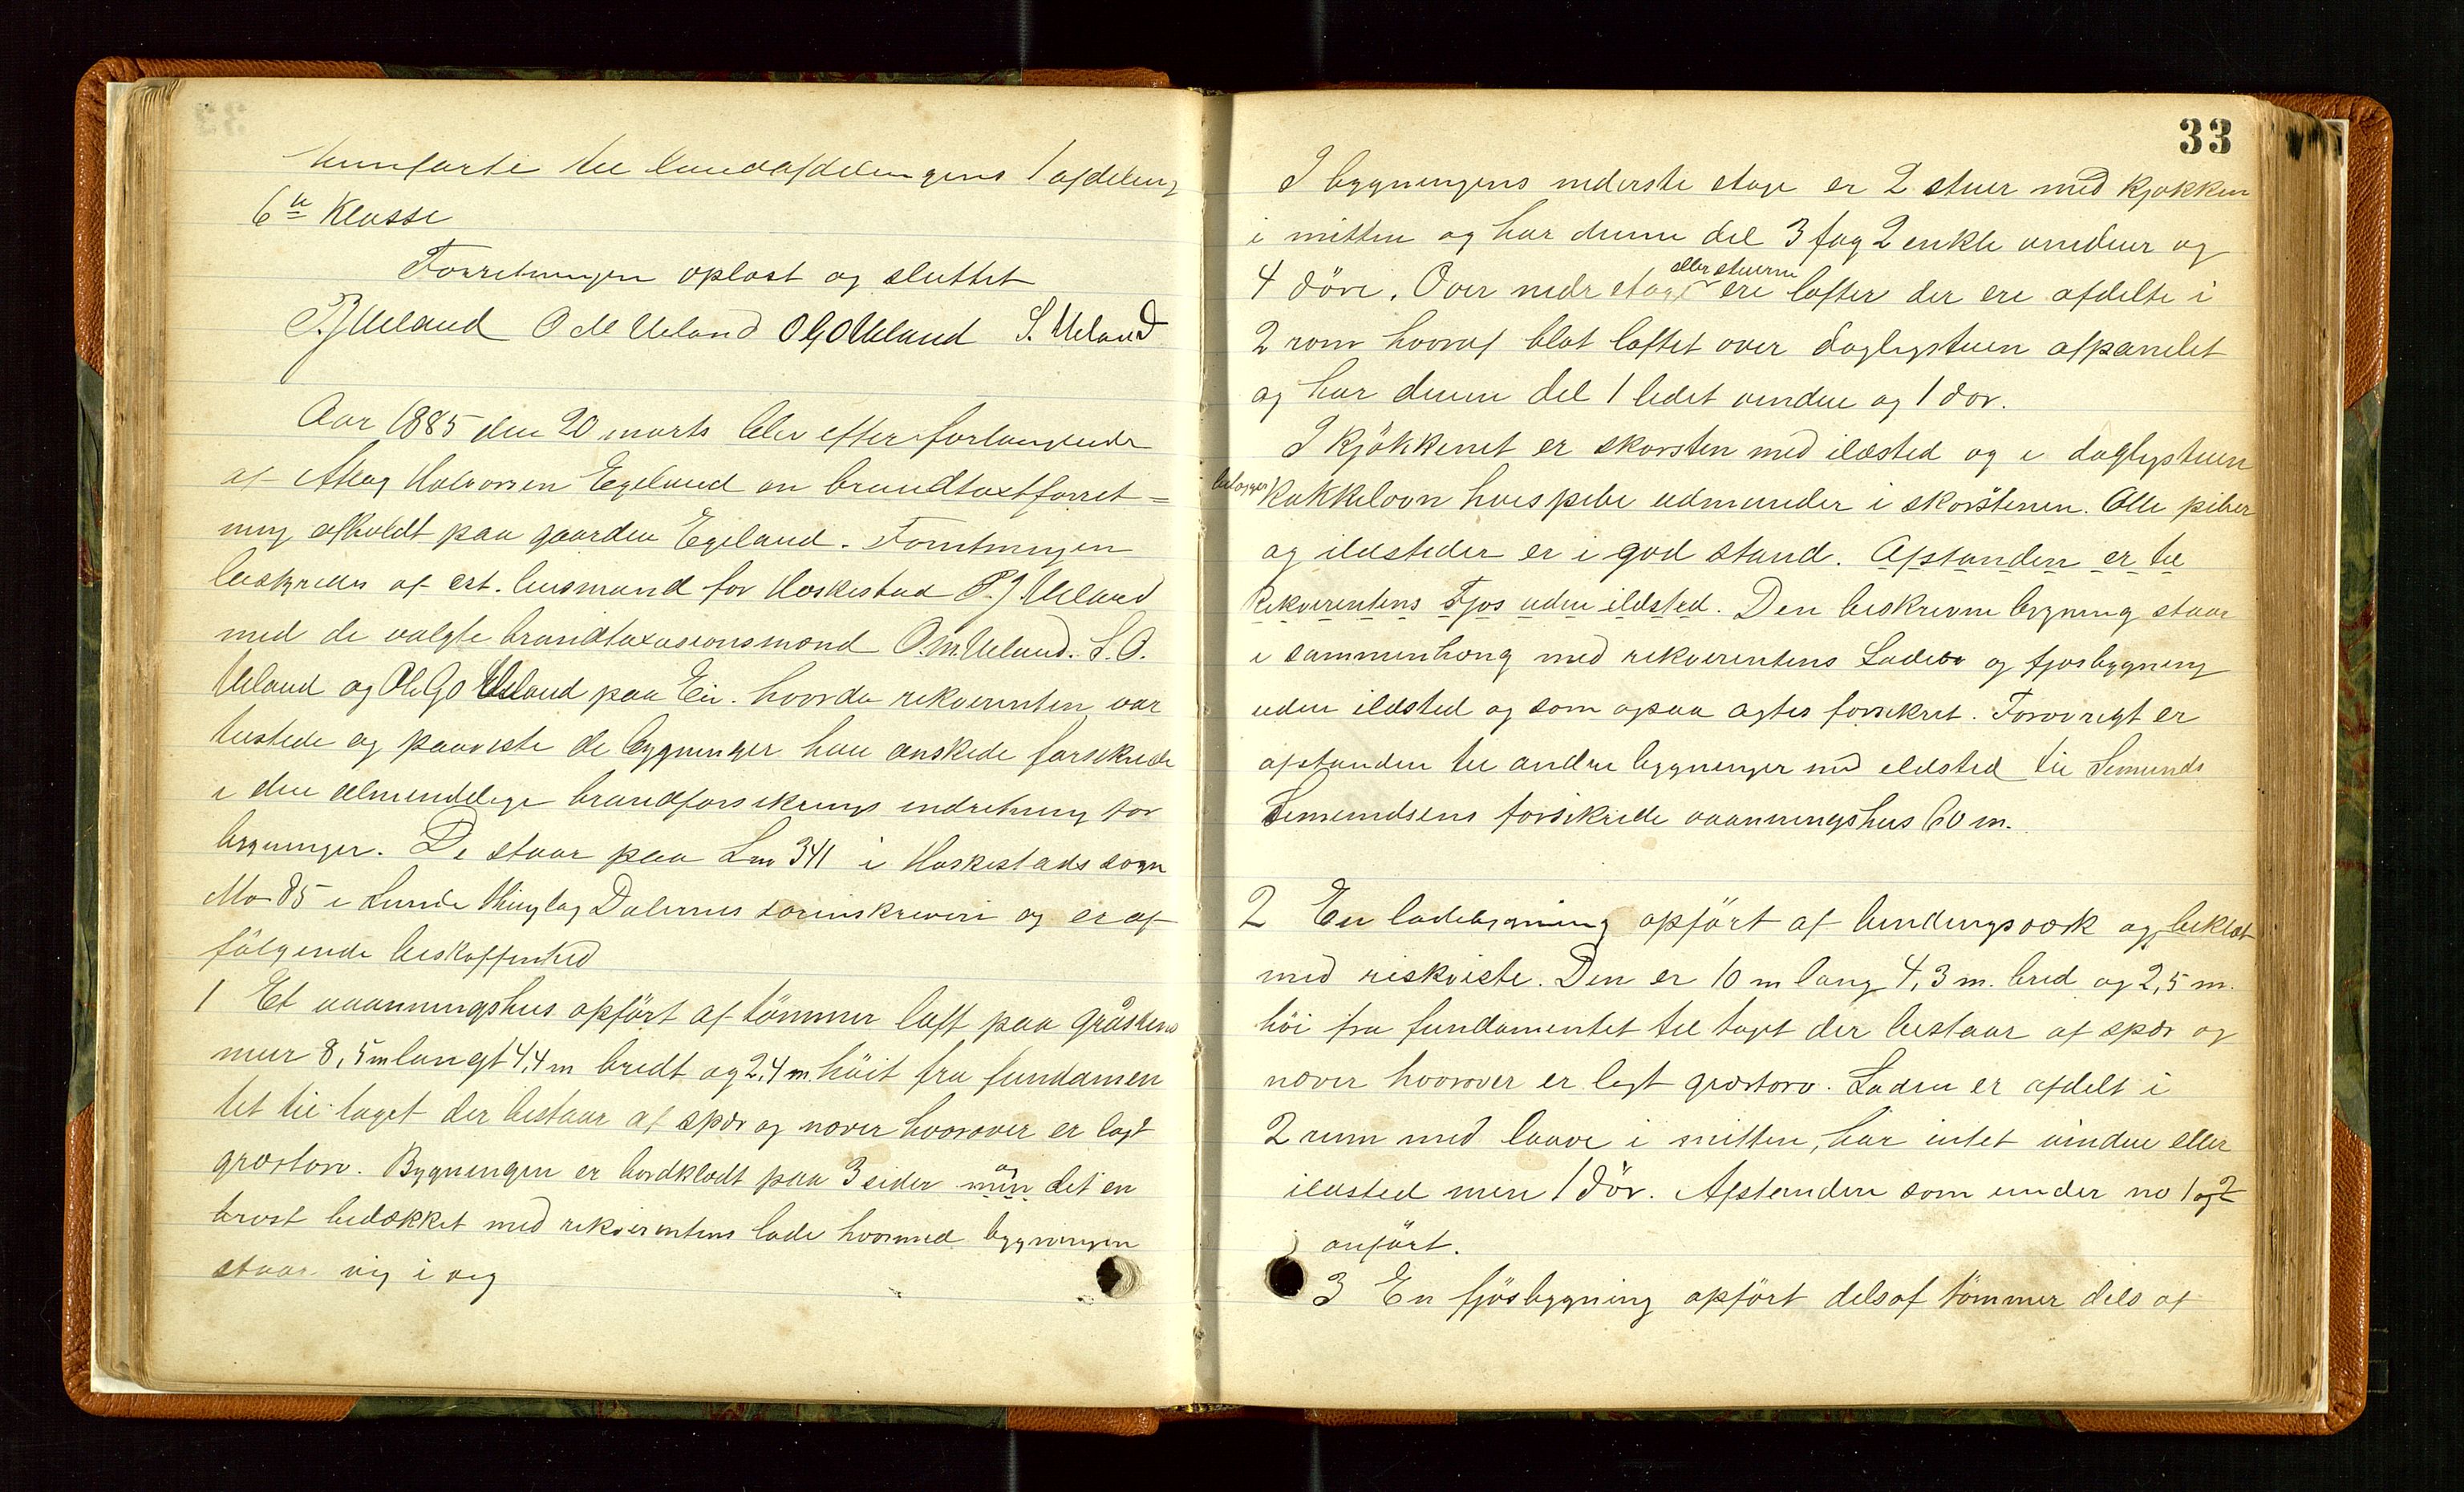 henförte til landafdelingens 1 afdeling
6te Klasse
Forretningen oplæst og sluttet
P. J. Ueland O M Ueland O G O Ueland S. Ueland
Aar 1885 den 20 marts blev efter forlangende
af Halvorsen Egeland en brandtaxtforret=
ning afholdt paa gaarden Egeland. Forretningen
beskyredes af cst. lensmand for Heskestad P. J Ueland
med de valgte brandtaxasionsmænd O. M. Ueland. S. O.
Ueland og Ol. Go Ueland paa Eie. hvorda rekvirenten var
tilstede og paaviste de bygninger han ønskede forsikrede
i den almindelige brandforsikrings indretning for
bygninger. De staar paa Lnr 341 i Heskestads sogn
Mno 85 i Lunde thinglag Dalernes sorinskriveri og er af
fölgende beskaffenhed
1 Et vaaningshus opfört af tömmer laft paa gråstens
mur 8,5 m langt 4,4 m bredt og 2,4 m. höit fra fundamen
tet til taget der bestaar af spær og næver hvorover er lagt
græstorv. Bygningen er bordklædt paa 3 sider men og det en
brøst bedækket med rekvirentens lade hvormed bygningen
staar væg i væg
33
I bygningens nederste etage er 2 stuer med kjøkken
i mitten og har denne del 3 fag 2 enkle vinduer og
4 döre. Over nedr etage eller stuerne ere lofter der ere afdelte i
2 rom hvoraf blot loftet over dagligstuen afpanelet
og har denne del 1 ledet vindue og 1 dør.
I kjökkenet er skorsten med ilæsted og i dagligstuen
kakkelovn hvis pibe udmunder i skorstenen. Alle piber
og ildsteder er i god stand. Afstanden er til
Rekvirentens Fjøs uden ildsted. Den beskrevne bygning staar
i sammenhæng med rekvirentens Lade og fjøsbygning
uden ildsted og som ogsaa agtes forsikret. Forøvrigt er
afstanden til andre bygninger med ildsted til Simunds
Simundsens forsikrede vaaningshus 60 m.
2 En ladebygning opfört af bindingsværk og beklædt
med riskviste. Den er 10 m lang 4,3 m. bred og 2,5 m.
höi fra fundamentet til taget der bestaar af spær og
næver hvorover er lagt græstorv. Laden er afdelt i
2 rum med laave i mitten, har intet vindue eller
ildsted men 1 dör. Afstanden som under no 1 og 2
anfört.
3 En fjösbygning opfört dels af tömmer dels af